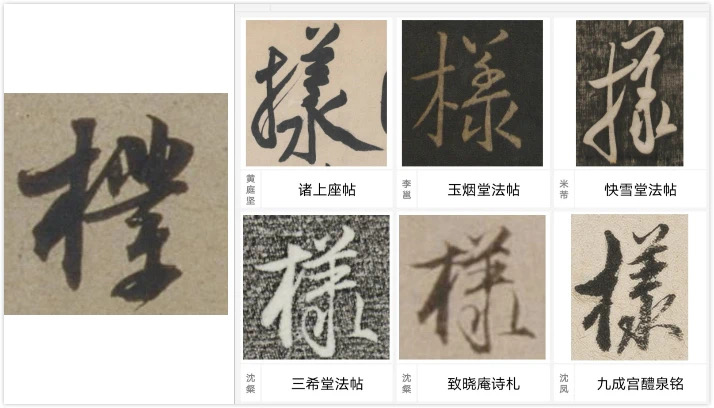 樣 樣 樣
黄庭坚 诸上座帖 李邕 玉烟堂法帖 米芾 快雪堂法帖
樣 樣 樣
沈粲 三希堂法帖 沈粲 致晓庵诗札 沈凤 九成宫醴泉铭